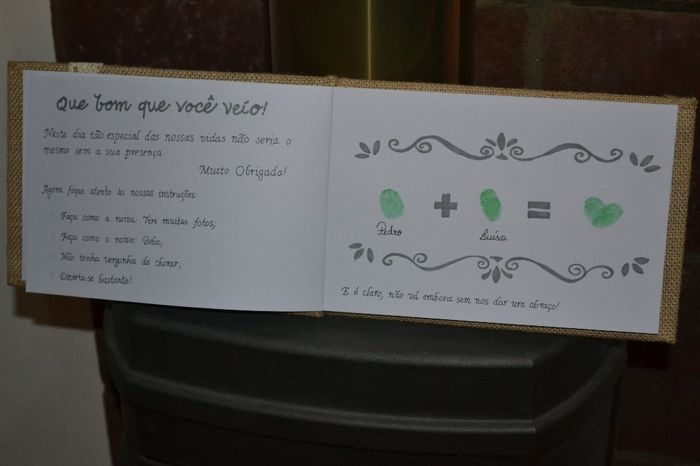 Que bom que você veio!
Neste dia tão especial das nossas vidas não seria o
mesmo sem a sua presença.
Muito Obrigada!
Agora fique atento às nossas instruções:
Faça como a noiva: Tire muitas fotos;
Faça como o noivo: Beba;
Não tenha vergonha de chorar;
Divirta-se bastante!
+ =
Pedro Luísa
E é claro, não vá embora sem nos dar um abraço!